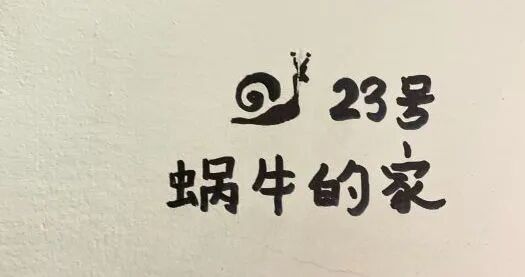 23号
蜗牛的家